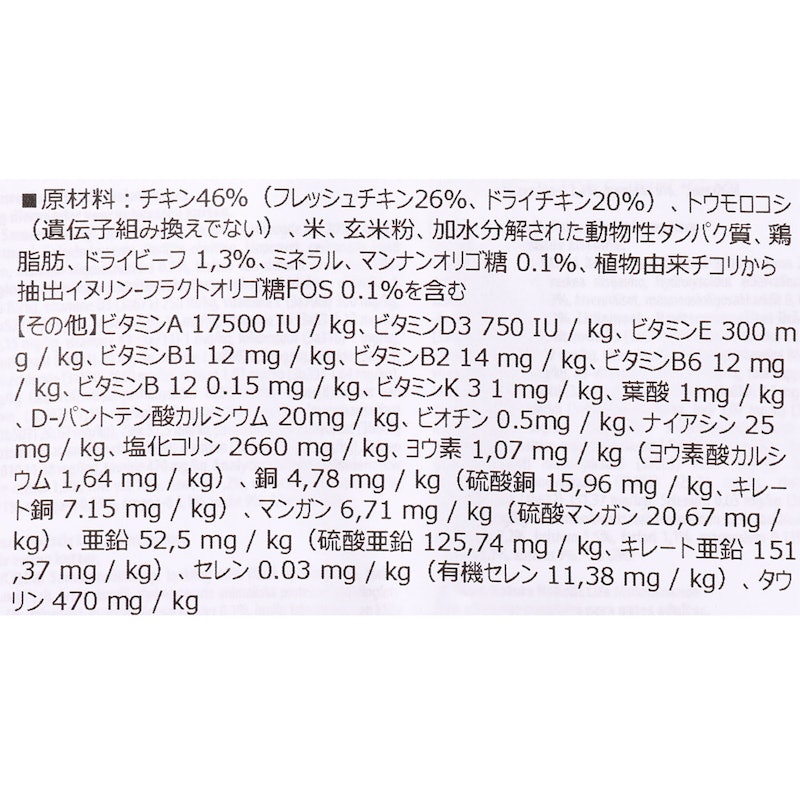 ■原材料：チキン46%（フレッシュチキン26%、ドライチキン20%）、トウモロコシ
（遺伝子組み換えでない）、米、玄米粉、加水分解された動物性タンパク質、鶏
脂肪、ドライビーフ 1,3%、ミネラル、マンナンオリゴ糖 0.1%、植物由来チコリから
抽出イヌリン-フラクトオリゴ糖FOS 0.1%を含む
【その他】ビタミンA 17500 IU / kg、ビタミンD3 750 IU / kg、ビタミンE 300 m
g / kg、ビタミンB1 12 mg / kg、ビタミンB2 14 mg / kg、ビタミンB6 12 mg
/ kg、ビタミンB 12 0.15 mg / kg、ビタミンK 3 1 mg / kg、葉酸 1mg / kg
、D-パントテン酸カルシウム 20mg / kg、ビオチン 0.5mg / kg、ナイアシン 25
mg / kg、塩化コリン 2660 mg / kg、ヨウ素 1,07 mg / kg（ヨウ素酸カルシ
ウム 1,64 mg / kg）、銅 4,78 mg / kg（硫酸銅 15,96 mg / kg、キレー
ト銅 7.15 mg / kg）、マンガン 6,71 mg / kg（硫酸マンガン 20,67 mg /
kg）、亜鉛 52,5 mg / kg（硫酸亜鉛 125,74 mg / kg、キレート亜鉛 151
,37 mg / kg）、セレン 0.03 mg / kg（有機セレン 11,38 mg / kg）、タウ
リン 470 mg / kg